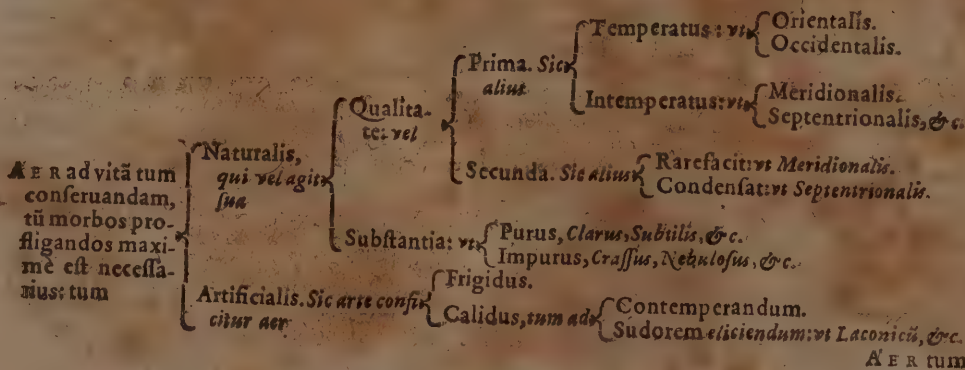 AER ad vitā tum
conſeruandam,
tū morbos pro-
fligandos maxi-
mè eſt neceſſa-
rius: tum
Naturalis,
qui vel agit
ſua
Qualita-
te: vel
Prima. Sic
alius
Temperatus: vt
Orientalis.
Occidentalis.
Intemperatus: vt
Meridionalis.
Septentrionalis, &c.
Secunda. Sic alius
Rarefacit: vt Meridionalis.
Condenſat: vt Septentrionalis.
Subſtantia: vt
Purus, Clarus, Subtilis, &c.
Impurus, Craſſus, Nebuloſus, &c.
Artificialis. Sic arte confi-
citur aer
Frigidus.
Calidus, tum ad
Contemperandum.
Sudorem eliciendum: vt Laconicū, &c.
AER tum